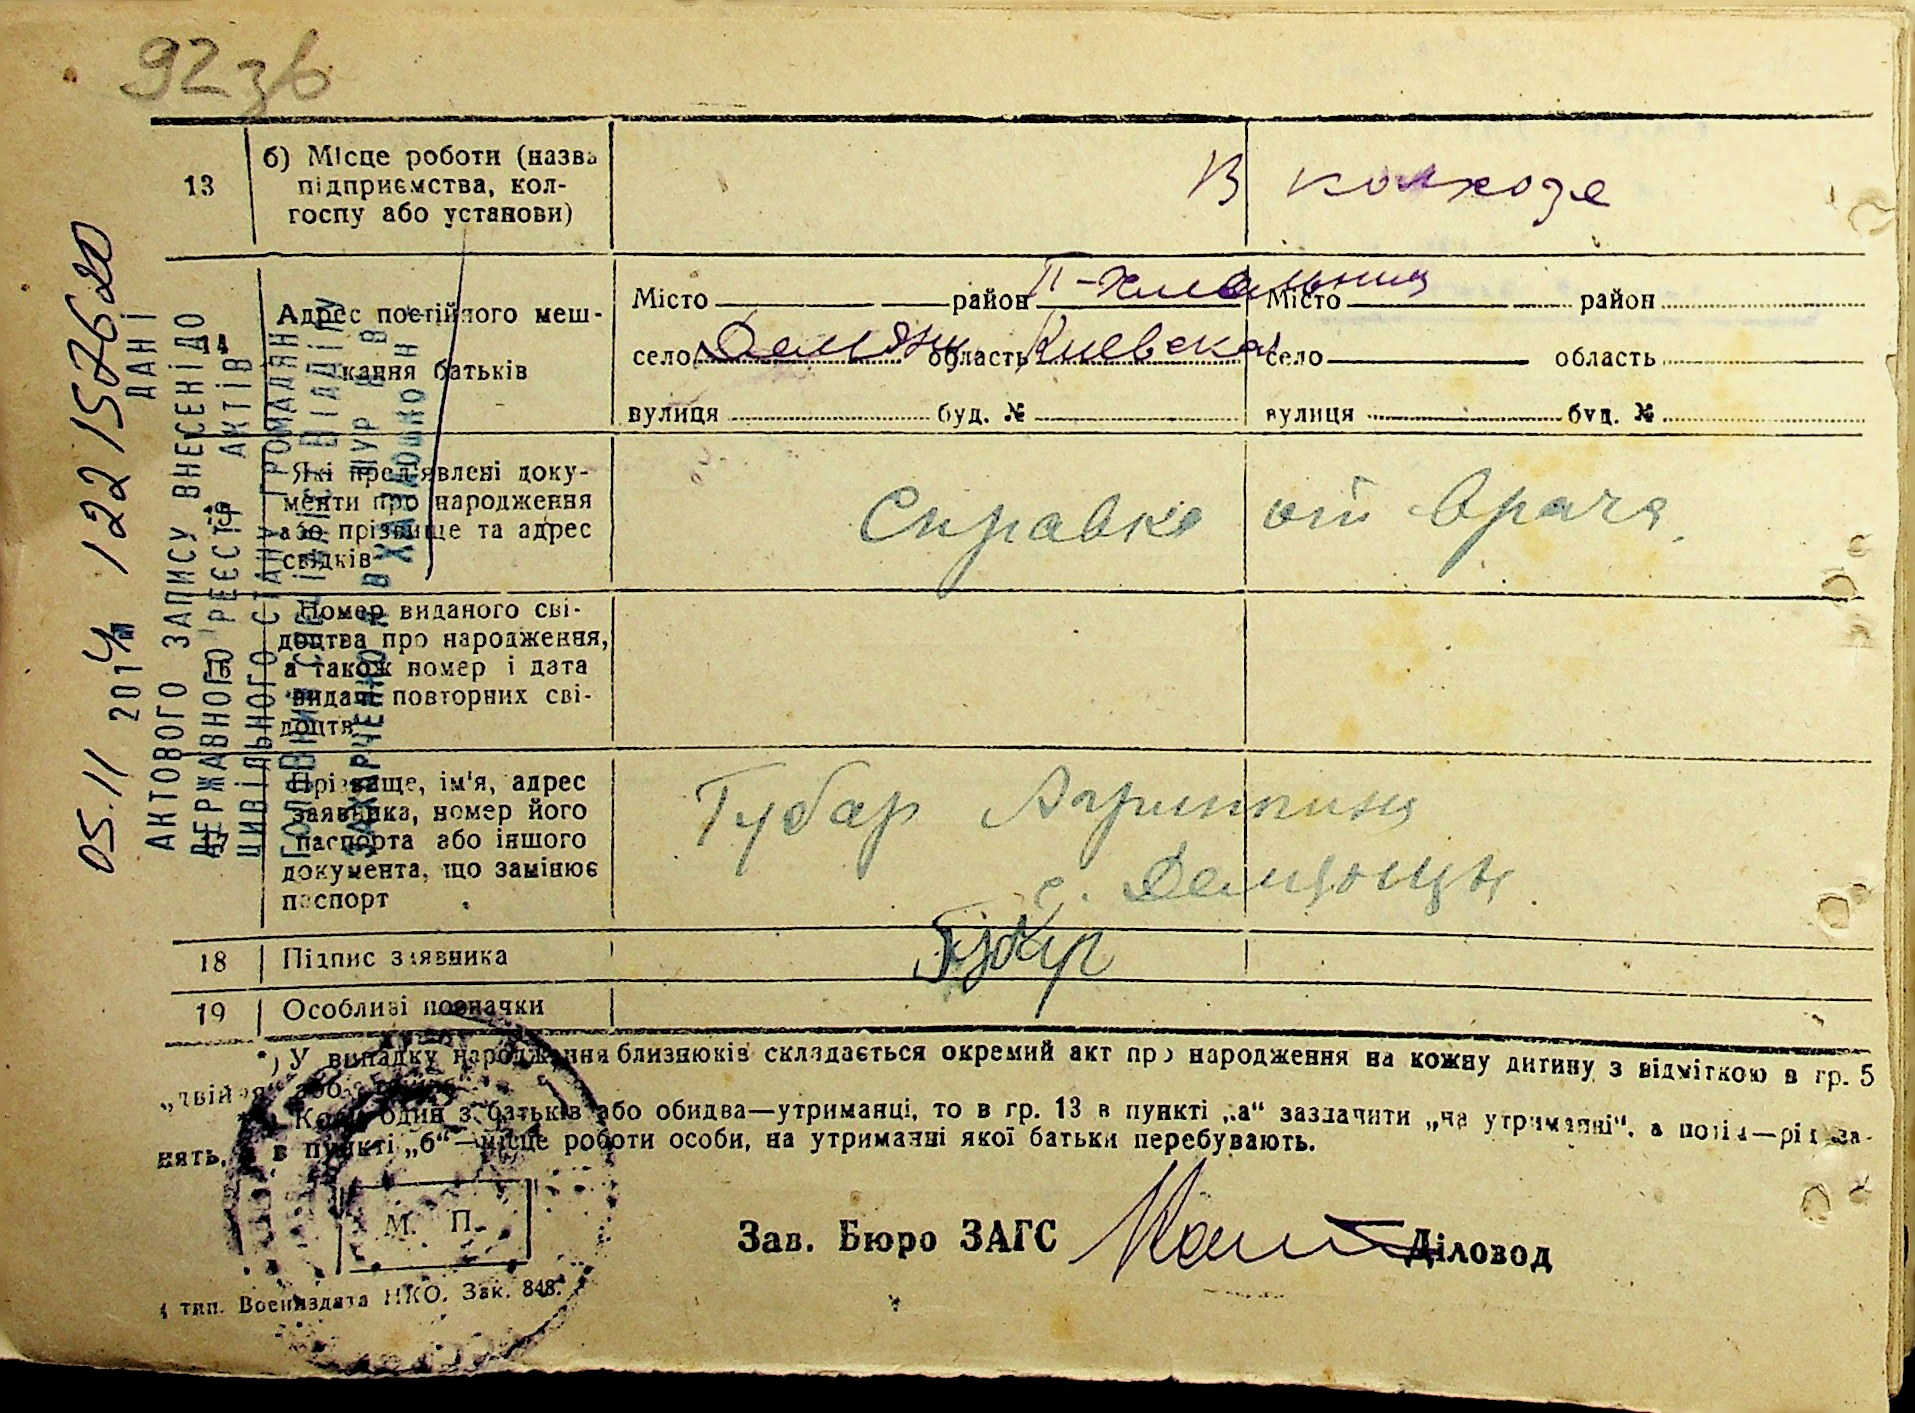 92 зв
13
б) Місце роботи (назва
підприємства, кол-
госпу або установи)
В колхозе
14
Адрес постійного меш-
кання батьків
Місто район П-Хмельниц
село Демянц область Киевская
вулиця буд. №
Місто район
село область
вулиця буд. №
15
Які пред'явлені доку-
менти про народження
або прізвище та адрес
свідків
Справка от врача.
16
Номер виданого сві-
доцтва про народження,
а також номер і дата
видачі повторних сві-
доцтв
17
Прізвище, ім'я, адрес
заявника, номер його
паспорта або іншого
документа, що замінює
паспорт
Губар Агрипина
с.
18
Підпис заявника
Губар
19
Особливі позначки
*) У випадку народження близнюків складається окремий акт про народження на кожну дитину з відміткою в гр. 5
„двійня" або
Коли один з батьків або обидва—утриманці, то в гр. 13 в пункті „а" зазначити „на утриманні", а потім—рід за-
нять, а в пункті „б"—місце роботи особи, на утриманні якої батьки перебувають.
М. П.
Зав. Бюро ЗАГС
Діловод
4 тип. Воениздата НКО. Зак. 848.
05.11 2014 122157620
ДАНІ
АКТОВОГО ЗАПИСУ ВНЕСЕНІ ДО
ДЕРЖАВНОГО РЕЄСТР АКТІВ
ЦИВІЛЬНОГО СТАНУ ГРОМАДЯН
ГОЛОВНИЙ СПЕЦІАЛІСТ ВІДДІЛУ